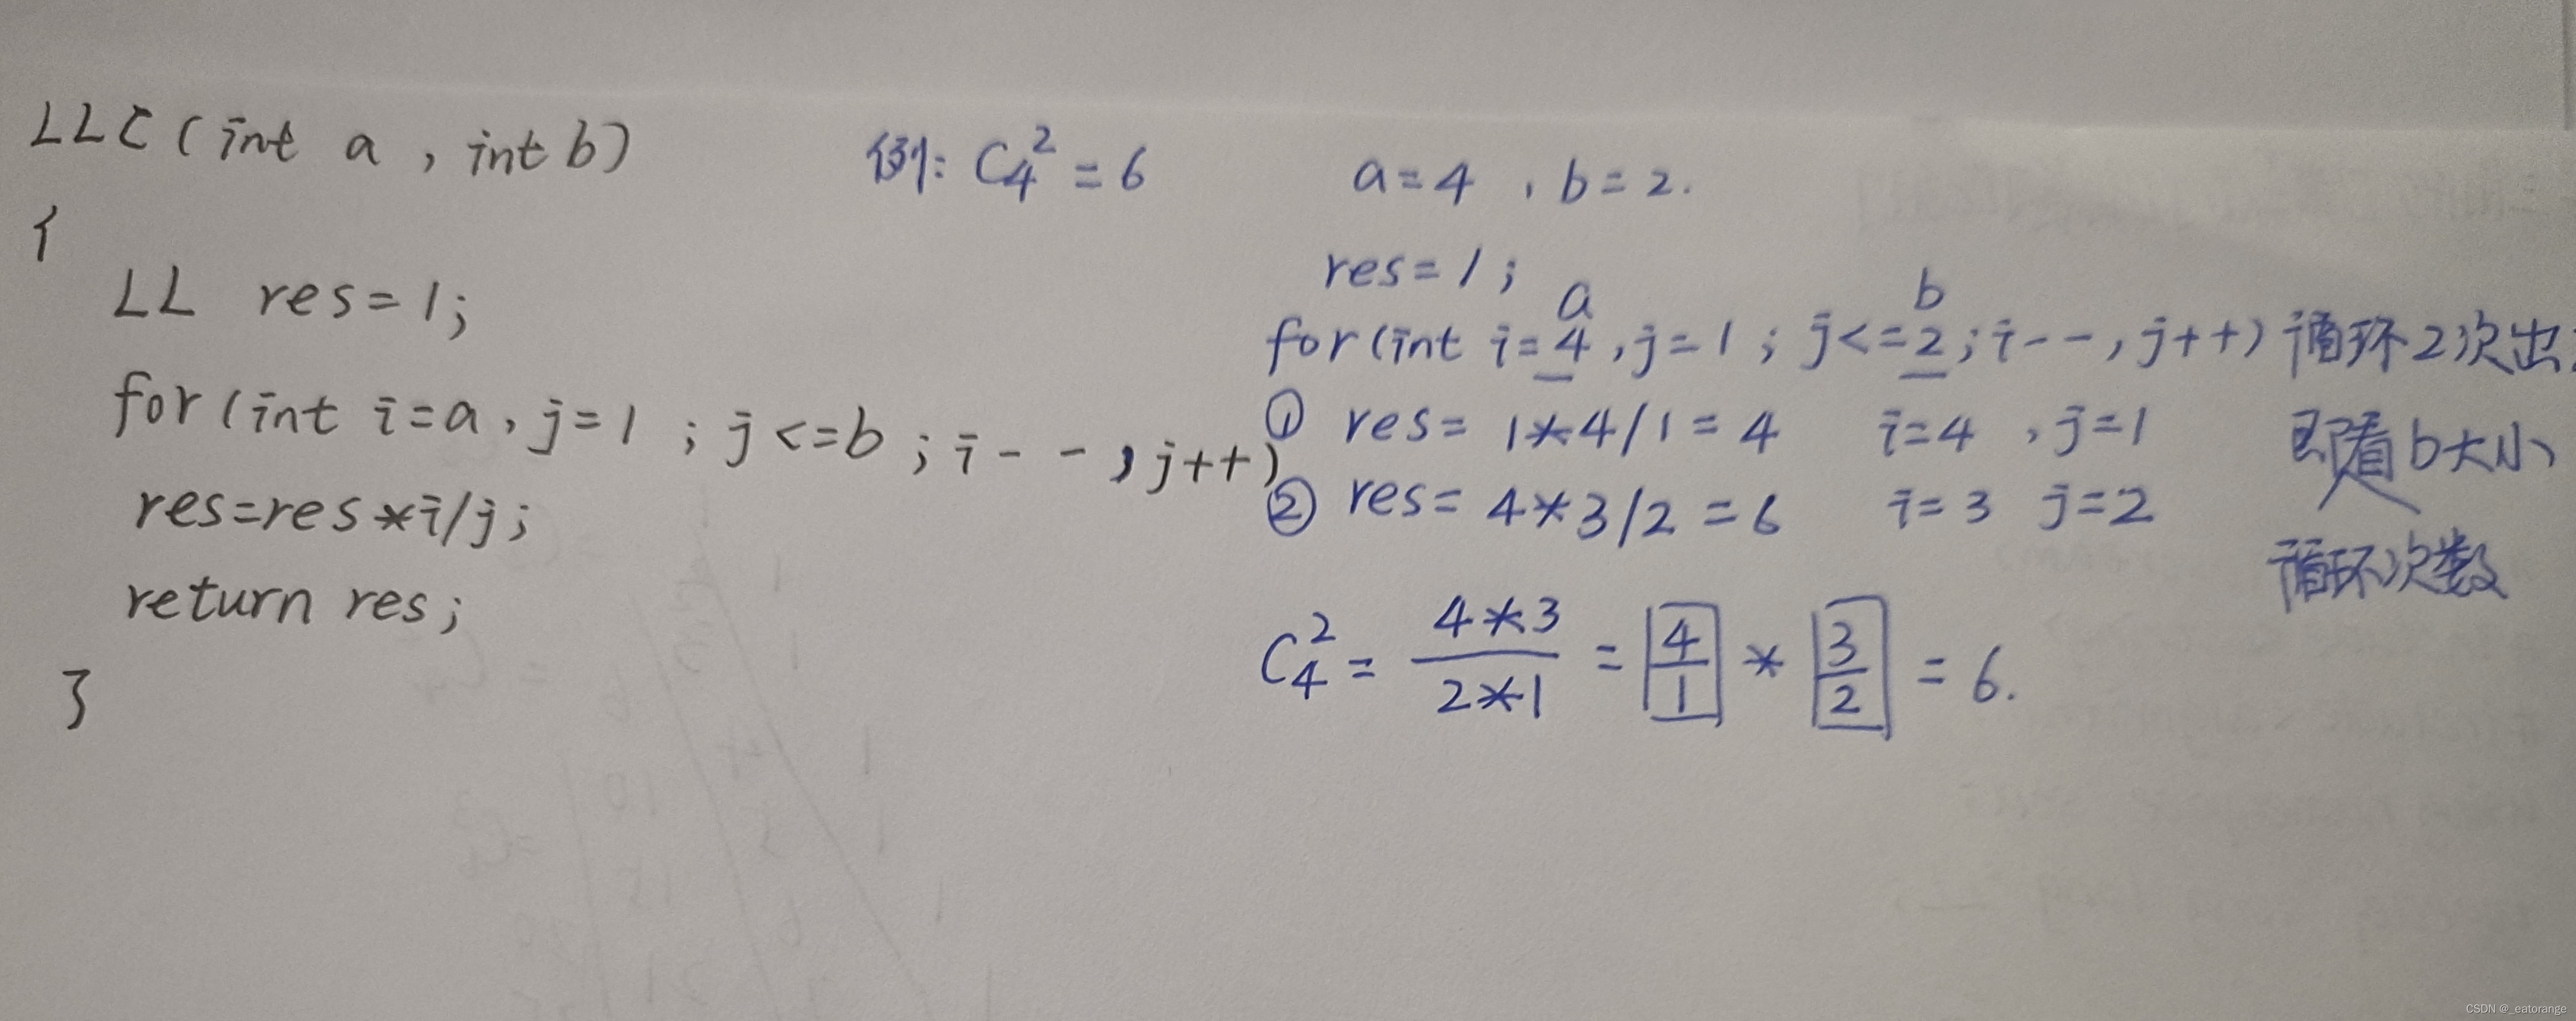 LLC(int a , int b)
{
LL res=1;
for(int i=a,j=1 ; j<=b ; i-- , j++)
res=res*i/j;
return res;
}
例: C₄² = 6
a=4 , b=2.
res=1;
a b
for(int i=4,j=1 ; j<=2 ; i-- , j++) 循环2次出
① res= 1*4/1=4 i=4 , j=1 即看b大小
② res= 4*3/2=6 i=3 j=2
循环次数
C₄² = 4*3/2*1 = 4/1 * 3/2 = 6.
CSDN @_eatorange